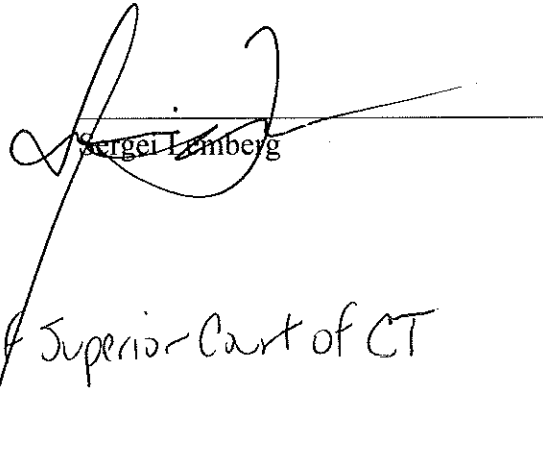 Sergei Lemberg
Superior Court of CT